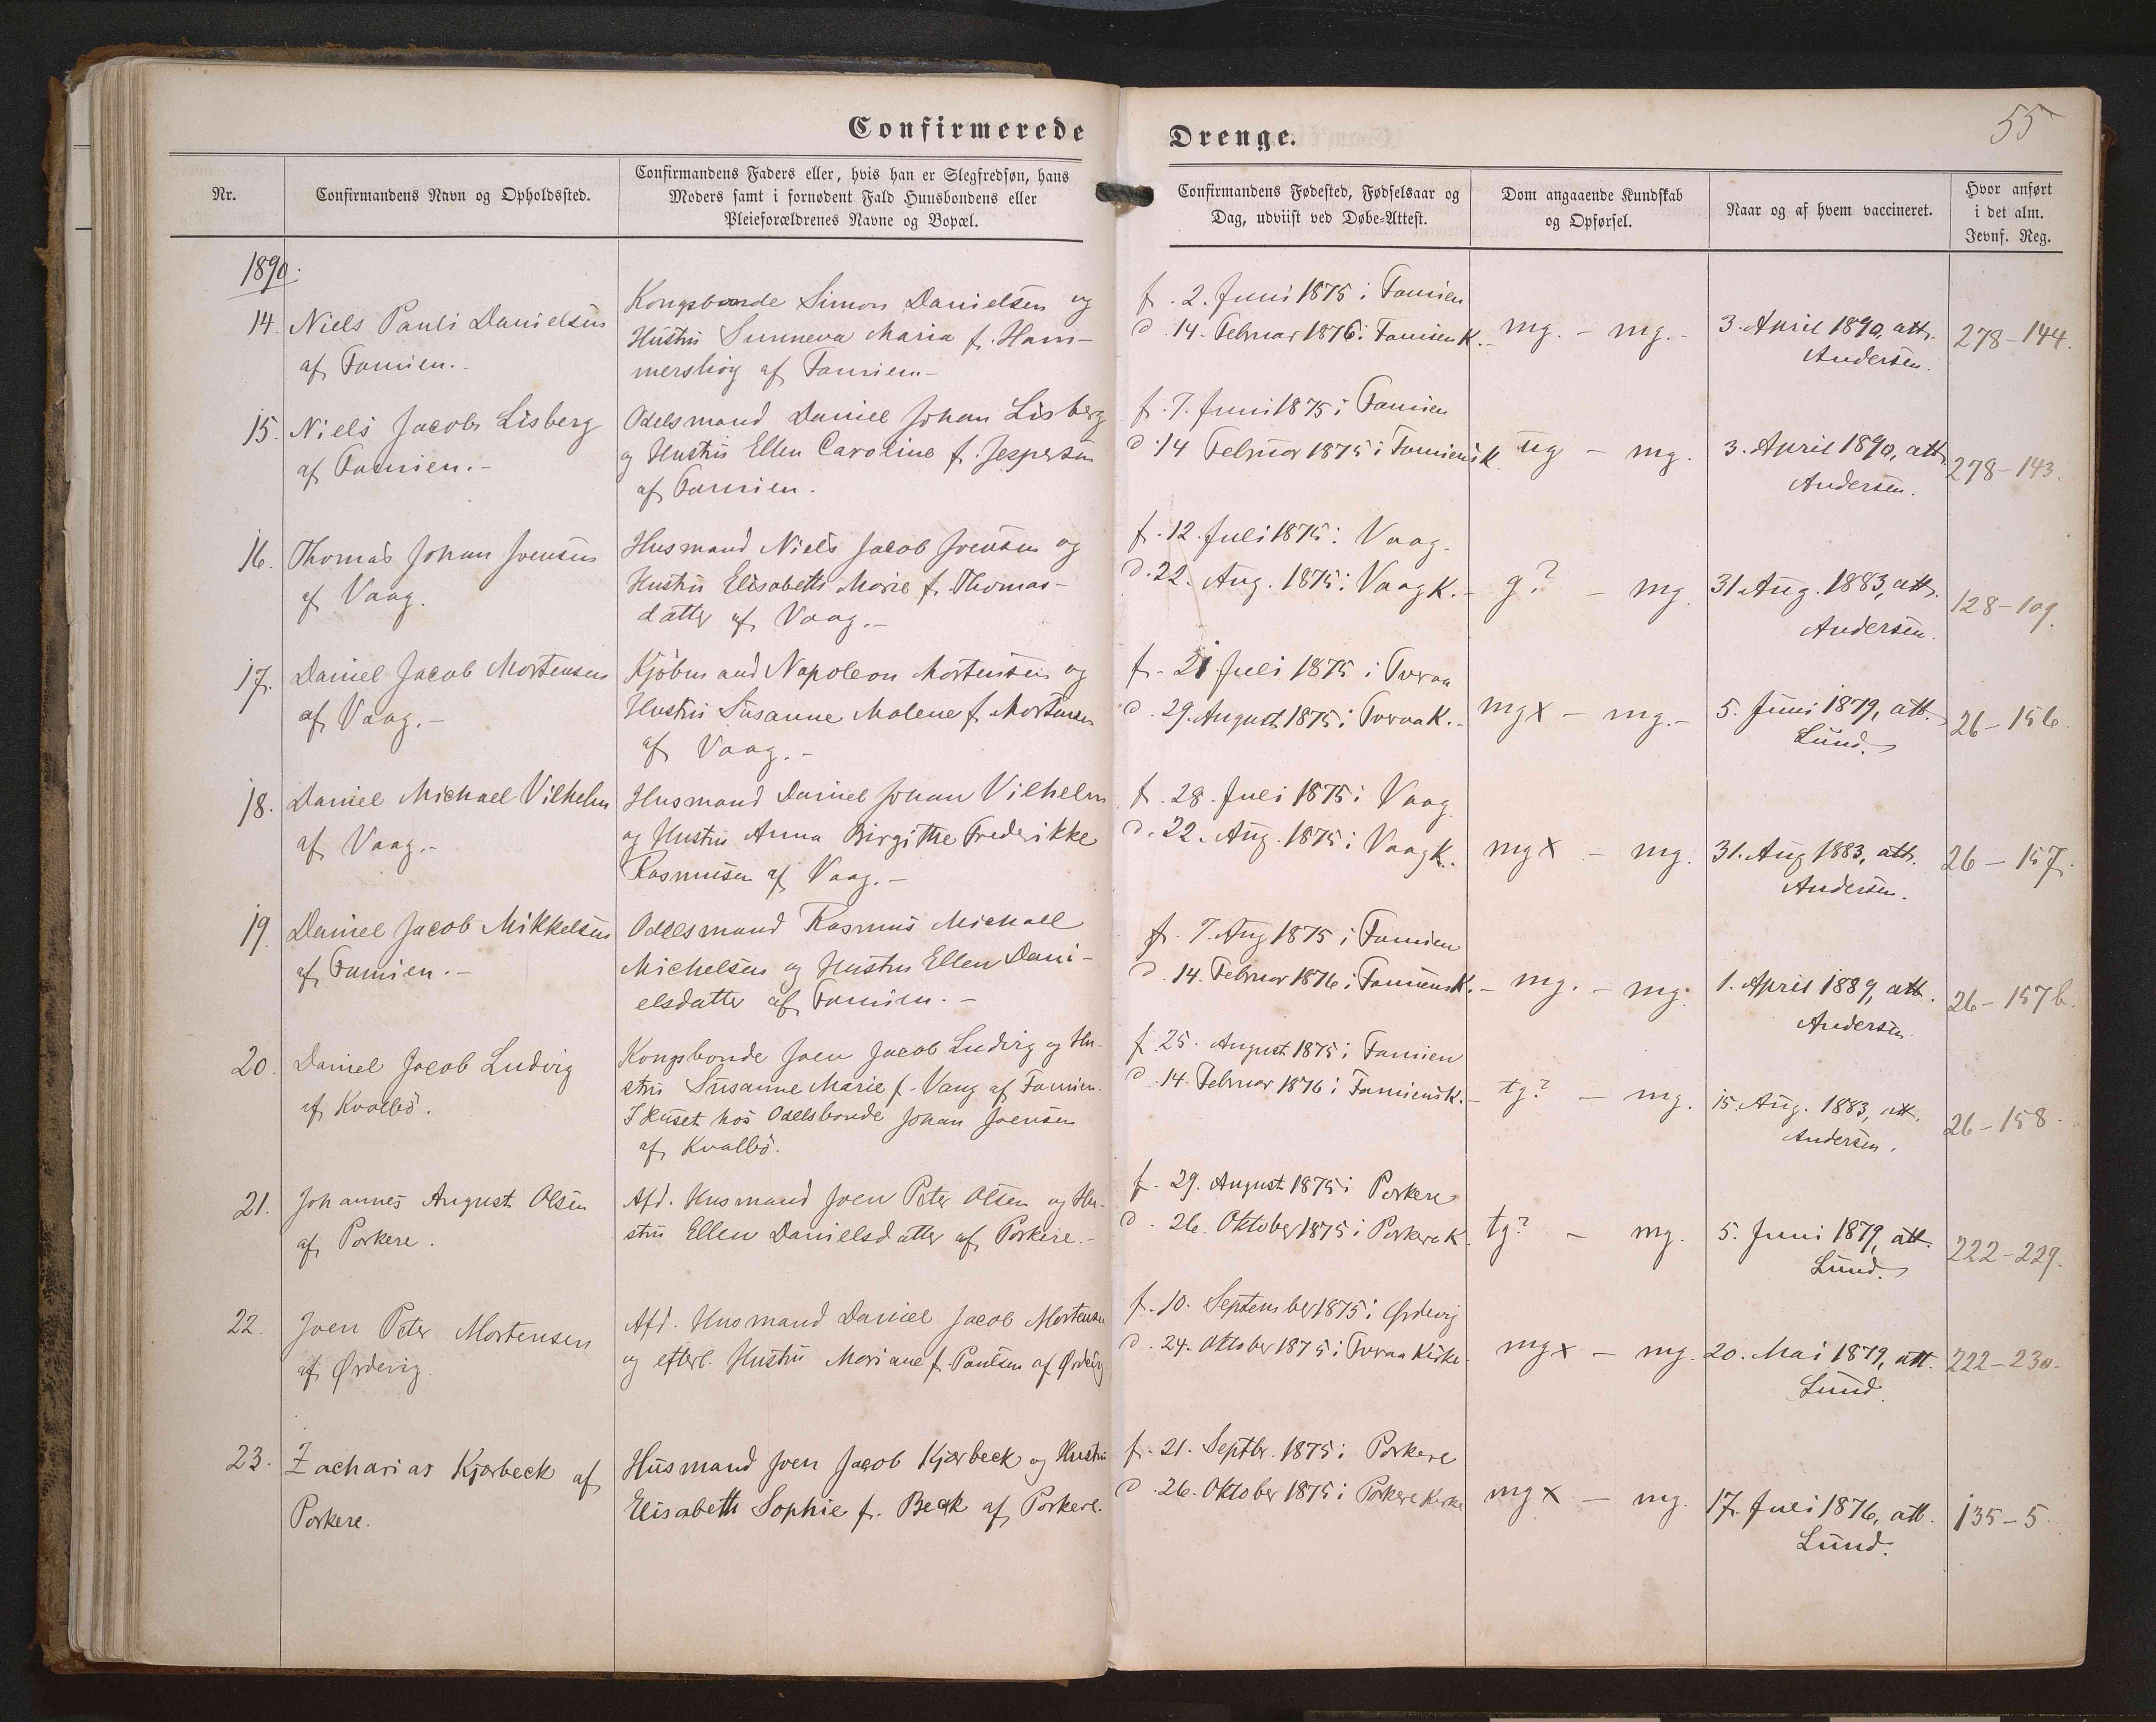 Confirmerede Drenge.
55
Nr.
Confirmandens Navn og Opholdssted.
Confirmandens Faders eller, hvis han er Slegfredsøn, hans
Moders samt i fornødent Fald Huusbondens eller
Pleieforældrenes Navne og Bopæl.
Confirmandens Fødested, Fødselsaar og
Dag, udviist ved Døbe-Attest.
Dom angaaende Kundskab
og Opførsel.
Naar og af hvem vaccineret.
Hvor anført
i det alm.
Jevnf. Reg.
1890.
14. Niels Pauli Danielsen
af Famien.
Kongsbonde Simon Danielsen og
Hustru Sunneva Maria f. Ham-
mershög af Famien.-
f. 2. Juni 1875 i Famien
d. 14. Februar 1876 i Famien K.-
mg. - mg.-
3. April 1890, att.
Andersen.
278-144.
15. Niels Jacob Lisberg
af Famien.-
Odelsmand Daniel Johan Lisberg
og Hustru Ellen Caroline f. Jespersen
af Famien.
f. 7. Juni 1875 i Famien
d. 14 Februar 1875 i Famiensk.
ug - mg.
3. April 1890, att.
Andersen.
278-143.
16. Thomas Johan Joensen
af Vaag.
Husmand Niels Jacob Joensen og
Hustru Elisabeth Marie f. Thomas-
datter af Vaag.-
f. 12. Juli 1875 i Vaag.
d. 22. Aug. 1875 i Vaag K.-
g? - mg.
31. Aug. 1883, att.
Andersen.
128-109.
17. Daniel Jacob Mortensen
af Vaag.-
Kjöbmand Napoleon Mortensen og
Hustru Susanne Malene f. Mortensen
af Vaag.-
f. 21 Juli 1875 i Tvraa
d. 29. August 1875 i Tvraa K.-
mgx - mg.-
5. Juni 1879, att.
Lund.
26-156.
18. Daniel Michael Vilhelm
af Vaag.-
Husmand Daniel Johan Vilhelm
og Hustru Anna Birgitte Frederikke
Rasmusen af Vaag.-
f. 28. Juli 1875 i Vaag
d. 22. Aug. 1875 i Vaag K.
mgx - mg.
31. Aug 1883, att.
Andersen.
26-157.
19. Daniel Jacob Mikkelsen
af Famien.-
Odelsmand Rasmus Michael
Michelsen og Hustru Ellen Dani-
elsdatter af Famien.-
f. 7. Aug 1875 i Famien
d. 14. Februar 1876 i Famiens K.-
mg. - mg.
1. April 1889, att.
Andersen.
26-157 b.
20. Daniel Jacob Ludvig
af Kvalbö.
Kongsbonde Joen Jacob Ludvig og Hu-
stru Susanne Marie f. Vang af Famien.
I huset hos Odelsbonde Johan Joensen
af Kvalbö.
f. 25. August 1875 i Famien
d. 14. Februar 1876 i Famiensk.-
tg? - mg.
15. Aug. 1883, att.
Andersen.
26-158.
21. Johannes August Olsen
af Porkere.
Afd. Husmand Joen Peter Olsen og Hu-
stru Ellen Danielsdatter af Porkere.-
f. 29. August 1875 i Porkere
d. 26. Oktober 1875 i Porkere K.
tg? - mg.
5. Juni 1879, att.
Lund.
222-229.
22. Joen Peter Mortensen
af Ørdevig.
Afd. Husmand Daniel Jacob Mortensen
og efterl. Hustru Mariane f. Poulsen af Ørdevig
f. 10. September 1875 i Ørdevig
d. 24. Oktober 1875 i Tvraa Kirke.
mgx - mg.
20. Mai 1879, att.
Lund.
222-230.
23. Zacharias Kjærbeck af
Porkere.
Husmand Joen Jacob Kjærbeck og Hustru
Elisabeth Sophie f. Beck af Porkere.
f. 21. Septbr. 1875 i Porkere
d. 26. Oktober 1875 i Porkere Kirke
mgx - mg.
17. Juli 1876, att.
Lund.
135-5.